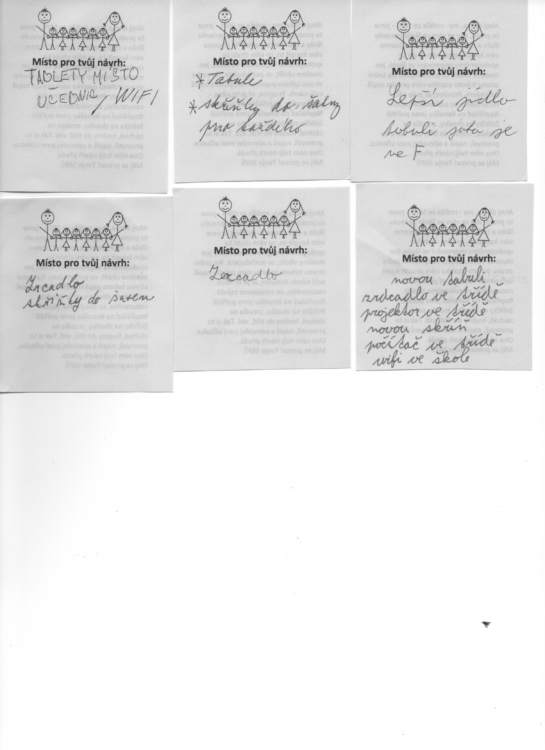 Místo pro tvůj návrh:
TABLETY MÍSTO
UČEBNIC, WIFI
Místo pro tvůj návrh:
* Tabule
* skříňky do šatny
pro každého
Místo pro tvůj návrh:
Lepší jídlo
tabuli jako je
ve F
Místo pro tvůj návrh:
Zrcadlo
skříňky do šaten
Místo pro tvůj návrh:
Zrcadlo
Místo pro tvůj návrh:
novou tabuli
zrdcadlo ve třídě
projektor ve třídě
novou skříň
počítač ve třídě
wifi ve škole